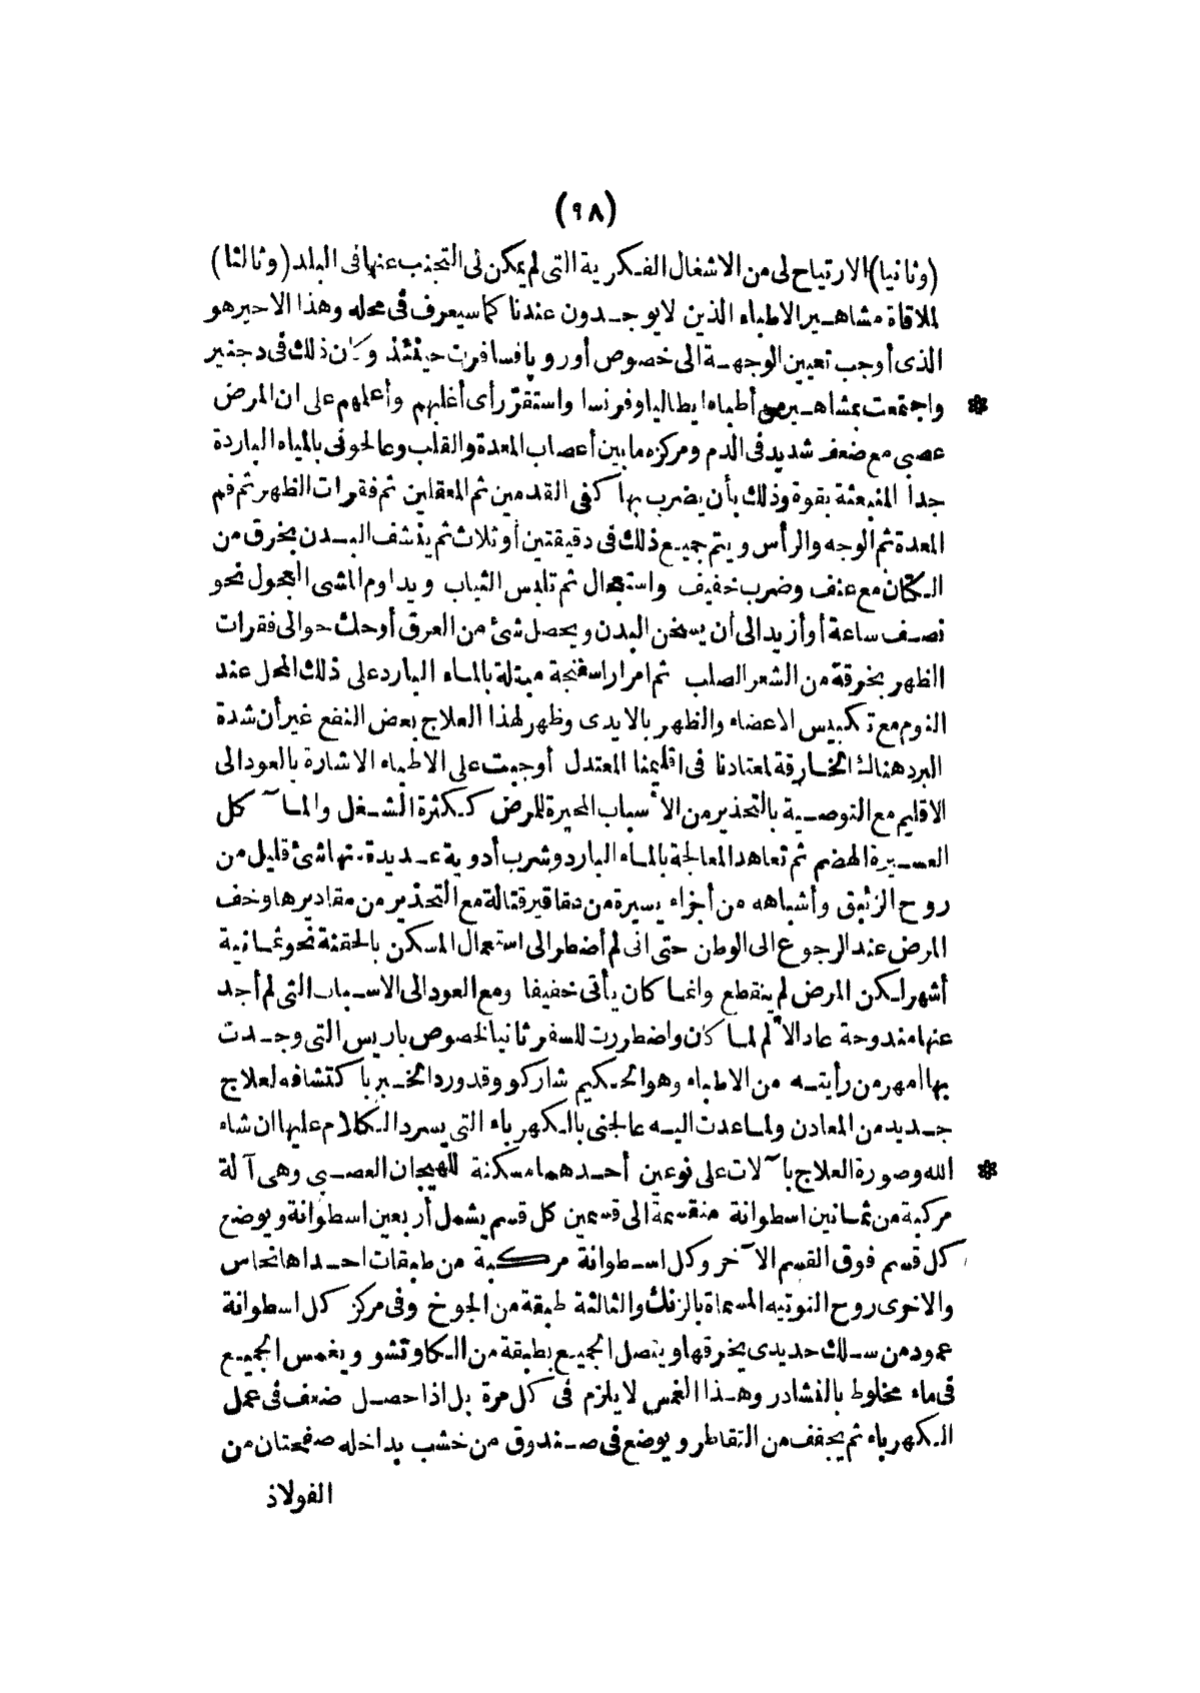 (٩٨)
(وثانيا) الارتياح لى من الاشغال الفكرية التى لم يمكن لى التجنب عنها فى البلد (وثالثا)
لملاقاة مشاهير الاطباء الذين لا يوجدون عندنا كما سيعرف فى محله وهذا الاخير هو
الذى أوجب تعيين الوجهة الى خصوص أوروپا فسافرت حينئذ وكان ذلك فى دجنبر
* واجتمعت بمشاهير من أطباء ايطاليا وفرنسا واستقرّ رأى أغلبهم وأعلمهم على ان المرض
عصبى مع ضعف شديد فى الدم ومركزه ما بين أعصاب المعدة والقلب وعالجونى بالمياه الباردة
جدا المنبعثة بقوة وذلك بأن يضرب بها كفى القدمين ثم المعقلين ثم فقرات الظهر ثم فم
المعدة ثم الوجه والرأس ويتم جميع ذلك فى دقيقتين أو ثلاث ثم ينشف البدن بخرق من
الكتان مع عنف وضرب خفيف واستعجال ثم تلبس الثياب ويداوم المشى العجول نحو
نصف ساعة أو أزيد الى أن يسخن البدن ويحصل شئ من العرق أو حك حوالى فقرات
الظهر بخرقة من الشعر الصلب ثم امرار اسفنجة مبتلة بالماء البارد على ذلك المحل عند
النوم مع تكبيس الاعضاء والظهر بالايدى وظهر لهذا العلاج بعض النفع غير أن شدة
البرد هناك الخارقة لمعتادنا فى اقليمنا المعتدل أوجبت على الاطباء الاشارة بالعود الى
الاقليم مع التوصية بالتحذير من الاسباب المحيرة للمرض ككثرة الشغل والمآكل
العسيرة الهضم ثم تعاهد المعالجة بالماء البارد وشرب أدوية عديدة منها شئ قليل من
روح الزئبق وأشباهه من أجزاء يسيرة من عقاقير قتالة مع التحذير من مقاديرها وخف
المرض عند الرجوع الى الوطن حتى انى لم أضطر الى استعمال المسكن بالحقنة نحو ثمانية
أشهر لكن المرض لم ينقطع وانما كان يأتى خفيفا ومع العود الى الاسباب التى لم أجد
عنها مندوحة عاد الالم لما كان واضطررت للسفر ثانيا لخصوص باريس التى وجدت
بها أمهر من رأيته من الاطباء وهو الحكيم شاركو وقد ورد الخبر باكتشافه لعلاج
جديد من المعادن ولما عدت اليه عالجنى بالكهرباء التى يسرد الكلام عليها ان شاء
* الله وصورة العلاج بآلات على نوعين أحدهما مسكنة للهيجان العصبى وهى آلة
مركبة من ثمانين اسطوانة منقسمة الى قسمين كل قسم يشمل أربعين اسطوانة ويوضع
كل قسم فوق القسم الآخر وكل اسطوانة مركبة من طبقات احداها نحاس
والاخرى روح التوتيه المسماة بالزنك والثالثة طبقة من الجوخ وفى مركز كل اسطوانة
عمود من سلك حديدى يخرقها ويتصل الجميع بطبقة من الكاوتشو ويغمس الجميع
فى ماء مخلوط بالنشادر وهذا الغمس لا يلزم فى كل مرة بل اذا حصل ضعف فى عمل
الكهرباء ثم يجفف من التقاطر ويوضع فى صندوق من خشب بداخله صفيحتان من
الفولاذ